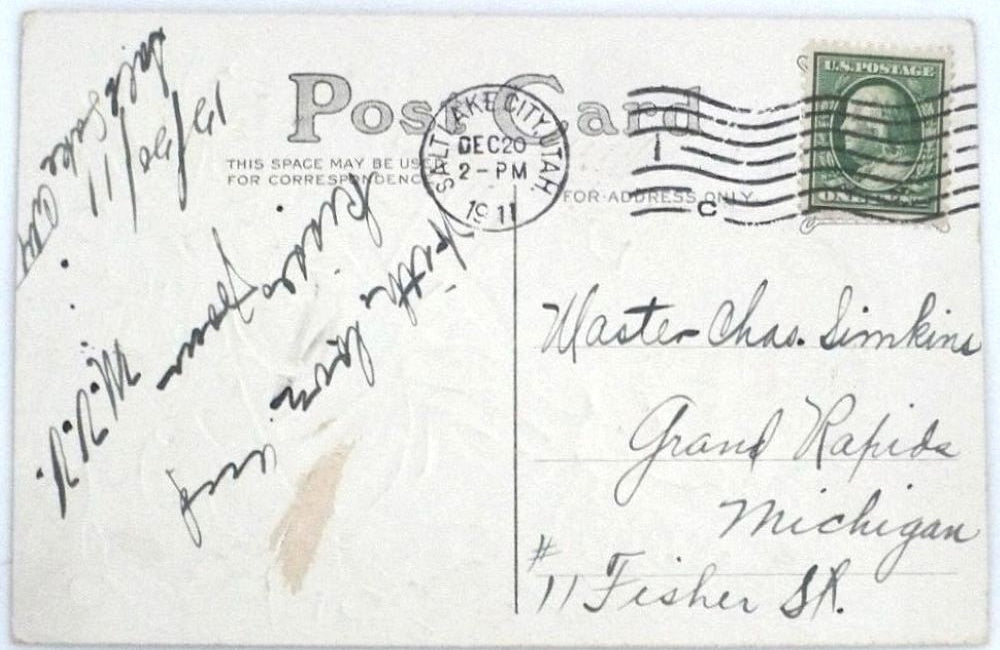 Post Card
THIS SPACE MAY BE USED
FOR CORRESPONDENCE
FOR ADDRESS ONLY
SALT LAKE CITY, UTAH.
DEC 20
2 - PM
1911
C
U.S. POSTAGE
Salt Lake City
12/20/11
with love
kisses from
W. V. V.
Master Chas. Simkins
Grand Rapids
Michigan
#
11 Fisher St.